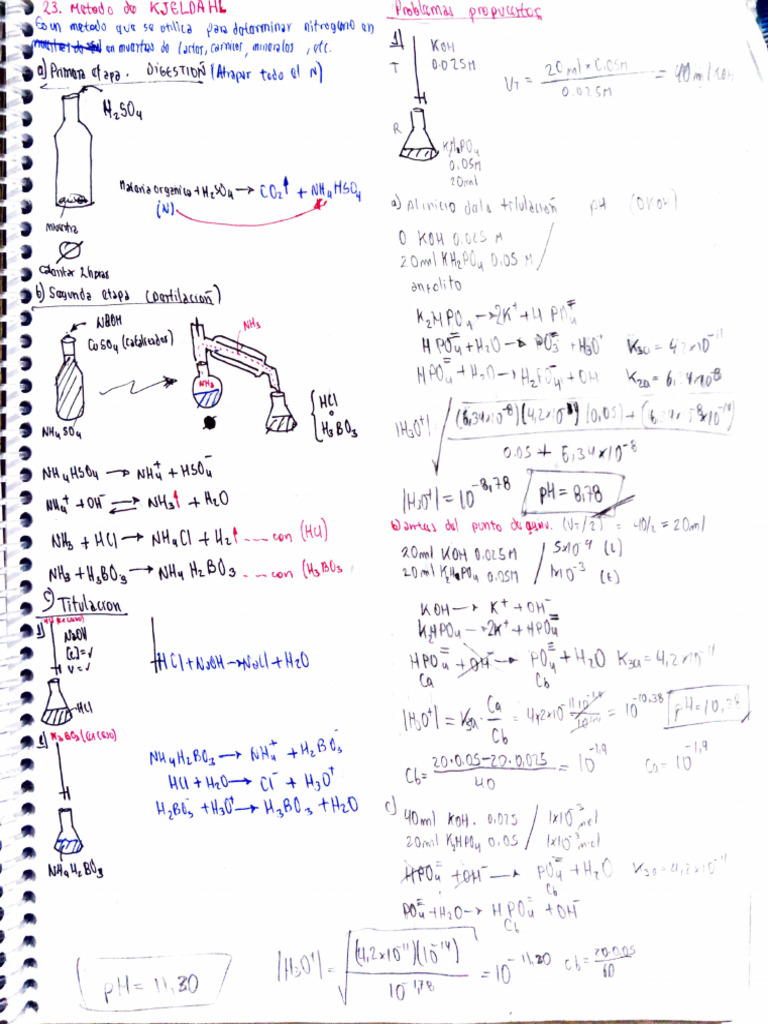 23. Metodo de KJELDAHL
Es un metodo que se utiliza para determinar nitrogeno en
en muestras de lactos, carnicos, minerales, etc.
a) Primera etapa. DIGESTION (Atrapar todo el N)
H₂SO₄
Materia organica + H₂SO₄ → CO₂↑ + NH₄HSO₄
(N)
muestra
Calentar 2 horas
b) Segunda etapa
NaOH
CuSO₄ (catalizador)
NH₃
NH₃
HCl
o
H₃BO₃
NH₄SO₄
NH₄HSO₄ → NH₄⁺ + HSO₄⁻
NH₄⁺ + OH⁻ ⇌ NH₃↑ + H₂O
NH₃ + HCl → NH₄Cl + H₂↑ .... con (HCl)
NH₃ + H₃BO₃ → NH₄H₂BO₃ ... con (H₃BO₃
c) Titulacion
1)
NaOH
[c] = ✓
V = ✓
HCl
HCl + NaOH → NaCl + H₂O
NH₄H₂BO₃
NH₄H₂BO₃ → NH₄⁺ + H₂BO₃⁻
HCl + H₂O → Cl⁻ + H₃O⁺
H₂BO₃⁻ + H₃O⁺ → H₃BO₃ + H₂O
Problemas propuestos
1)
KOH
T 0.025M
V_T = 20ml × 0.05M / 0.025M = 40ml KOH
R
0.05M
20ml
a) Al inicio de la titulación pH (0 KOH)
0 KOH 0.025 M
20ml KH₂PO₄ 0.05 M
anfolito
K₂HPO₄ → 2K⁺ + HPO₄⁼
HPO₄⁼ + H₂O → PO₄≡ + H₃O⁺ K₃a = 4,2×10⁻¹¹
HPO₄⁼ + H₂O → H₂PO₄⁻ + OH K₂a = 6,34×10⁻⁸
|H₃O⁺|
0.05 + 6,34×10⁻⁸
|H₃O⁺| = 10⁻⁸·⁷⁸ pH = 8,78
b) antes del punto de equiv. (V_T/2) = 40/2 = 20ml
20ml KOH 0.025M / 5×10⁻⁴ (L)
20ml K₂HPO₄ 0.05M / 1×10⁻³ (E)
KOH → K⁺ + OH⁻
K₂HPO₄ → 2K⁺ + HPO₄⁼
HPO₄⁼ + OH⁻ → PO₄≡ + H₂O K₃a = 4,2×10⁻¹¹
Ca Cb
|H₃O⁺| = K₃a · Ca/Cb = 4,2×10⁻¹¹ = 10⁻¹⁰·³⁸ pH = 10,38
Cb = 20·0.05-20·0.025 / 40 = 10⁻¹·⁹ Ca = 10⁻¹·⁹
c)
40ml KOH. 0.025 / 1×10⁻³ mol
20ml K₂HPO₄ 0.05 / 1×10⁻³ mol
HPO₄⁼ + OH⁻ → PO₄≡ + H₂O K₃a = 4,2×10⁻¹¹
Cb
PO₄≡ + H₂O → HPO₄⁼ + OH⁻
Cb
pH = 11,30
|H₃O⁺| = √((4,2×10⁻¹¹)(10⁻¹⁴) / 10⁻¹·⁷⁸) = 10⁻¹¹·³⁰ Cb = 20·0.05 / 60